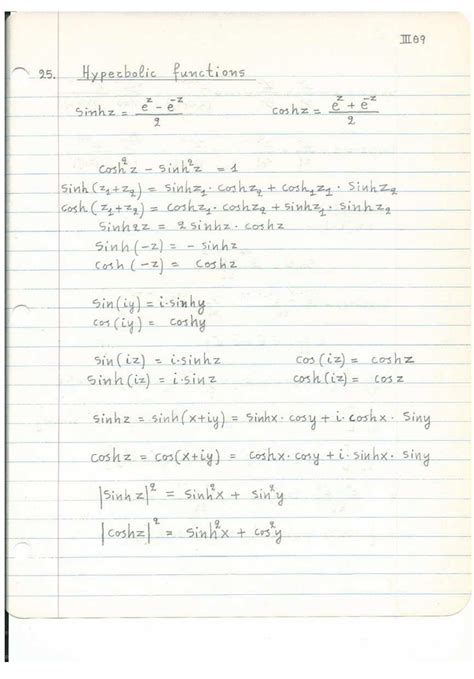 III 89
25. Hyperbolic functions
sinhz = (e^z - e^-z)/2 coshz = (e^z + e^-z)/2
cosh²z - sinh²z = 1
sinh(z₁+z₂) = sinhz₁·coshz₂ + cosh₁z₁·sinhz₂
cosh(z₁+z₂) = coshz₁·coshz₂ + sinhz₁·sinhz₂
sinh2z = 2sinhz·coshz
sinh(-z) = -sinhz
cosh(-z) = coshz
sin(iy) = i·sinhy
cos(iy) = coshy
sin(iz) = i·sinhz cos(iz) = coshz
sinh(iz) = i·sinz cosh(iz) = cosz
sinhz = sinh(x+iy) = sinhx·cosy + i·coshx·siny
coshz = cos(x+iy) = coshx·cosy + i·sinhx·siny
|sinhz|² = sinh²x + sin²y
|coshz|² = sinh²x + cos²y